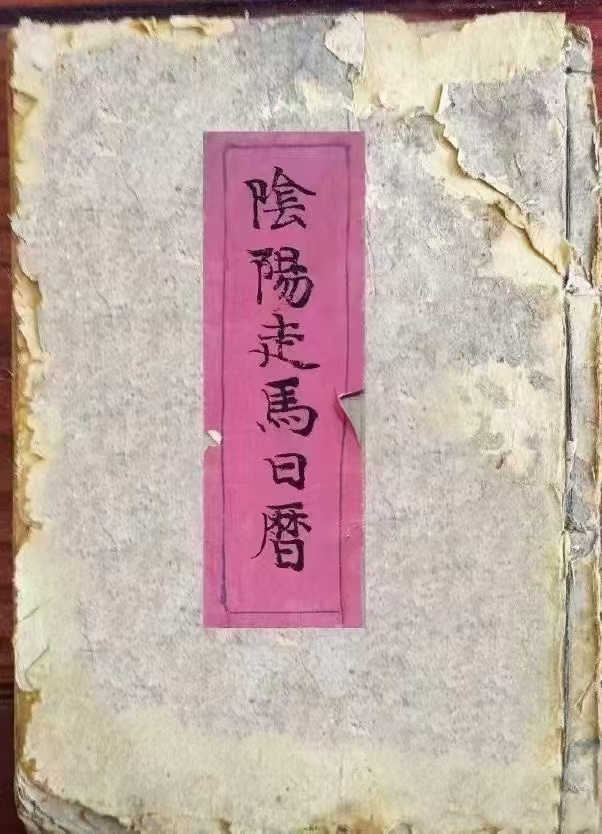 陰陽走馬日暦